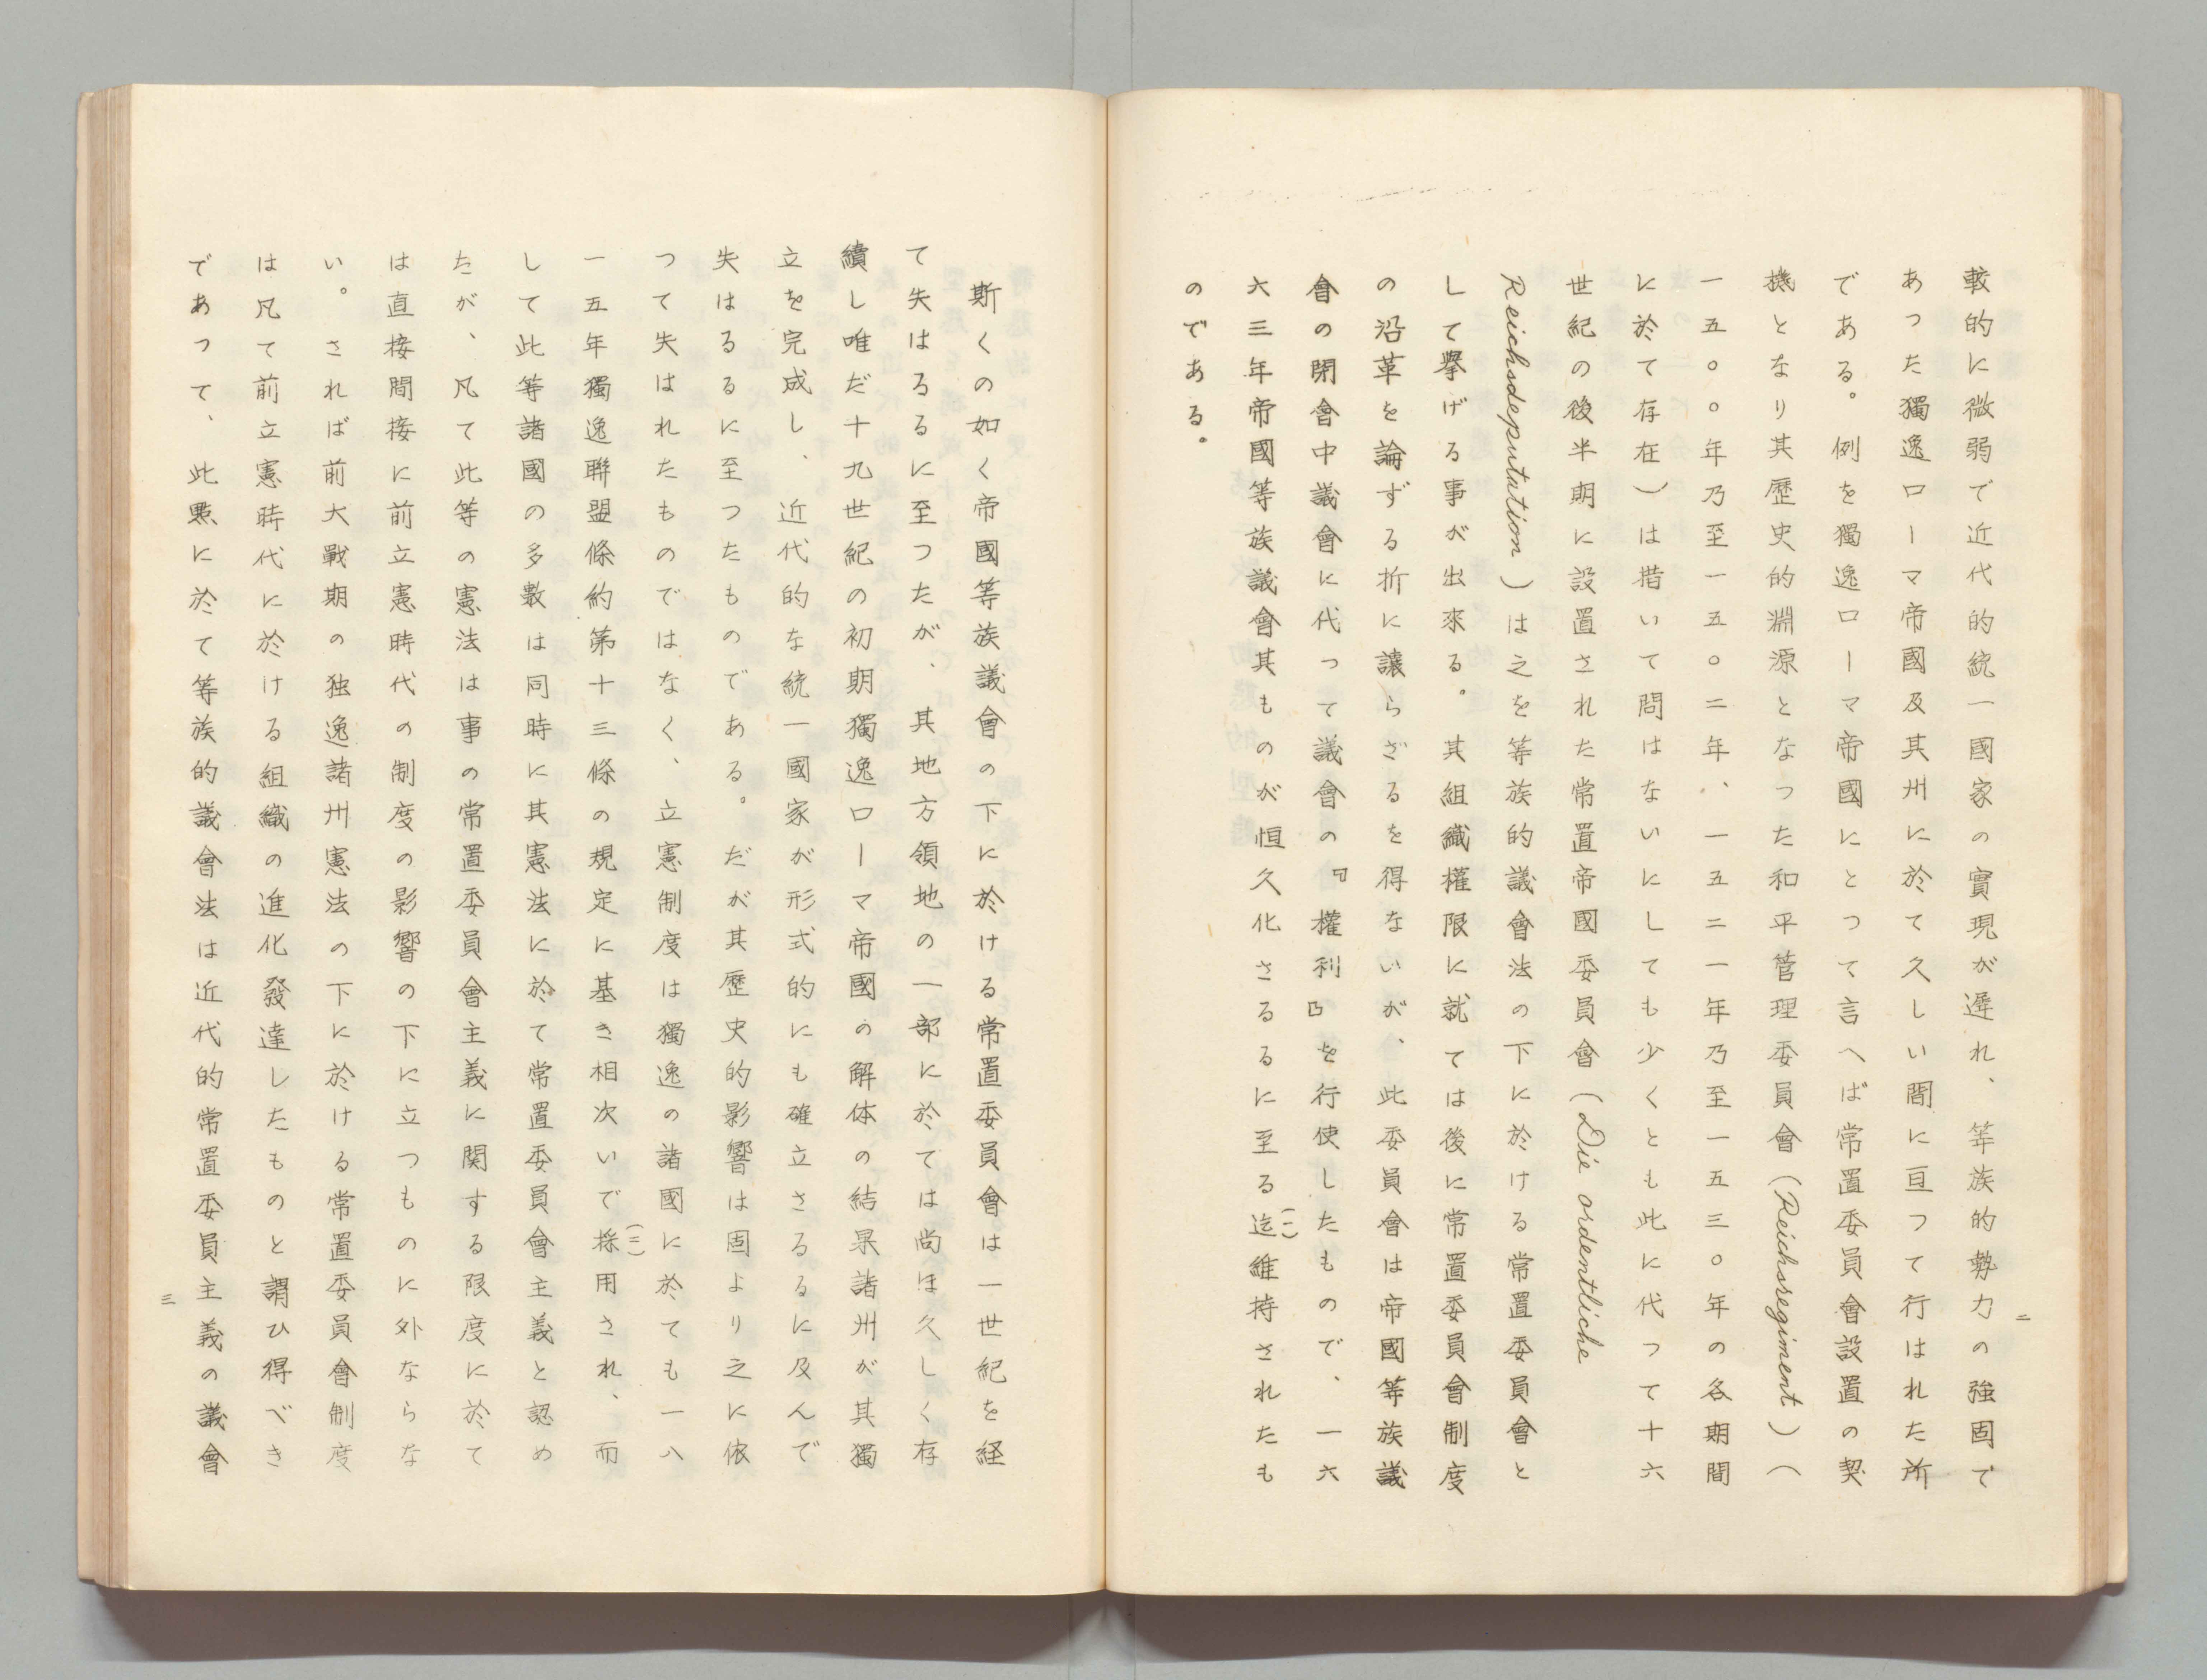 較的に微弱で近代的統一國家の實現が遲れ、等族的勢力の強固で
あつた獨逸ローマ帝國及其州に於て久しい間に亘つて行はれた所
である。例を獨逸ローマ帝國にとつて言へば常置委員會設置の契
機となり其歷史的淵源となつた和平管理委員會(Reichsregiment)(
一五〇〇年乃至一五〇二年、一五二一年乃至一五三〇年の各期間
に於て存在)は措いて問はないにしても少くとも此に代つて十六
世紀の後半期に設置された常置帝國委員會(Die ordentliche
Reichsdeputation)は之を等族的議會法の下に於ける常置委員會と
して擧げる事が出來る。其組織權限に就ては後に常置委員會制度
の沿革を論ずる折に讓らざるを得ないが、此委員會は帝國等族議
會の閉會中議會に代つて議會の『權利』を行使したもので、一六
六三年帝國等族議會其ものが恒久化さるるに至る迄(二)維持されたも
のである。
二
斯くの如く帝國等族議會の下に於ける常置委員會は一世紀を経
て失はるるに至つたが、其地方領地の一部に於ては尚ほ久しく存
續し唯だ十九世紀の初期獨逸ローマ帝國の解体の結果諸州が其獨
立を完成し、近代的な統一國家が形式的にも確立さるるに及んで
失はるるに至つたものである。だが其歷史的影響は固より之に依
つて失はれたものではなく、立憲制度は獨逸の諸國に於ても一八
一五年獨逸聯盟條約第十三條の規定に基き相次いで(三)採用され、而
して此等諸國の多數は同時に其憲法に於て常置委員會主義と認め
たが、凡て此等の憲法は事の常置委員會主義に関する限度に於て
は直接間接に前立憲時代の制度の影響の下に立つものに外ならな
い。されば前大戰期の独逸諸州憲法の下に於ける常置委員會制度
は凡て前立憲時代に於ける組織の進化發達したものと謂ひ得べき
であつて、此點に於て等族的議會法は近代的常置委員主義の議會
三